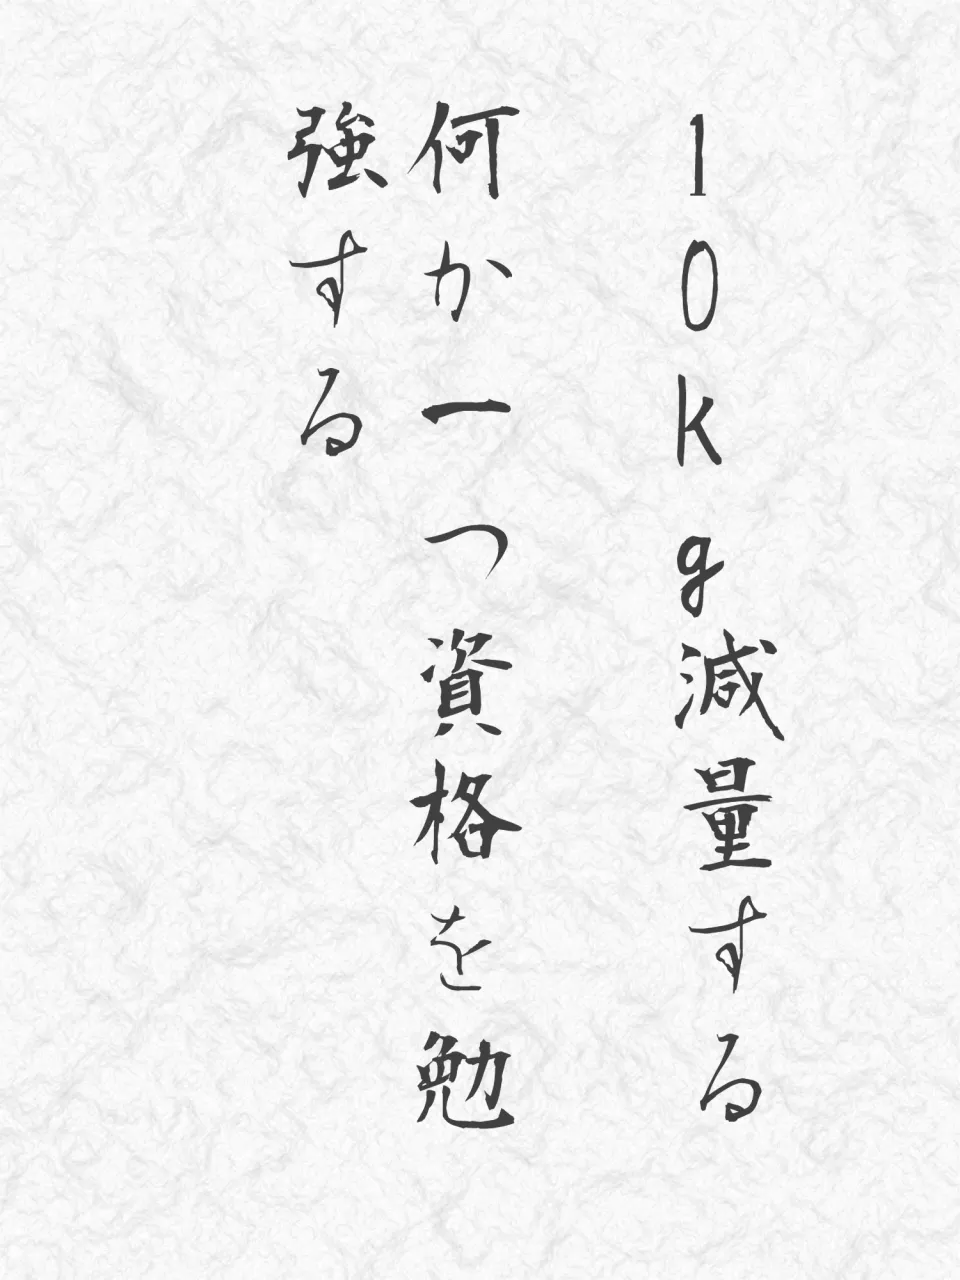 10kg減量する
何か一つ資格を勉
強する